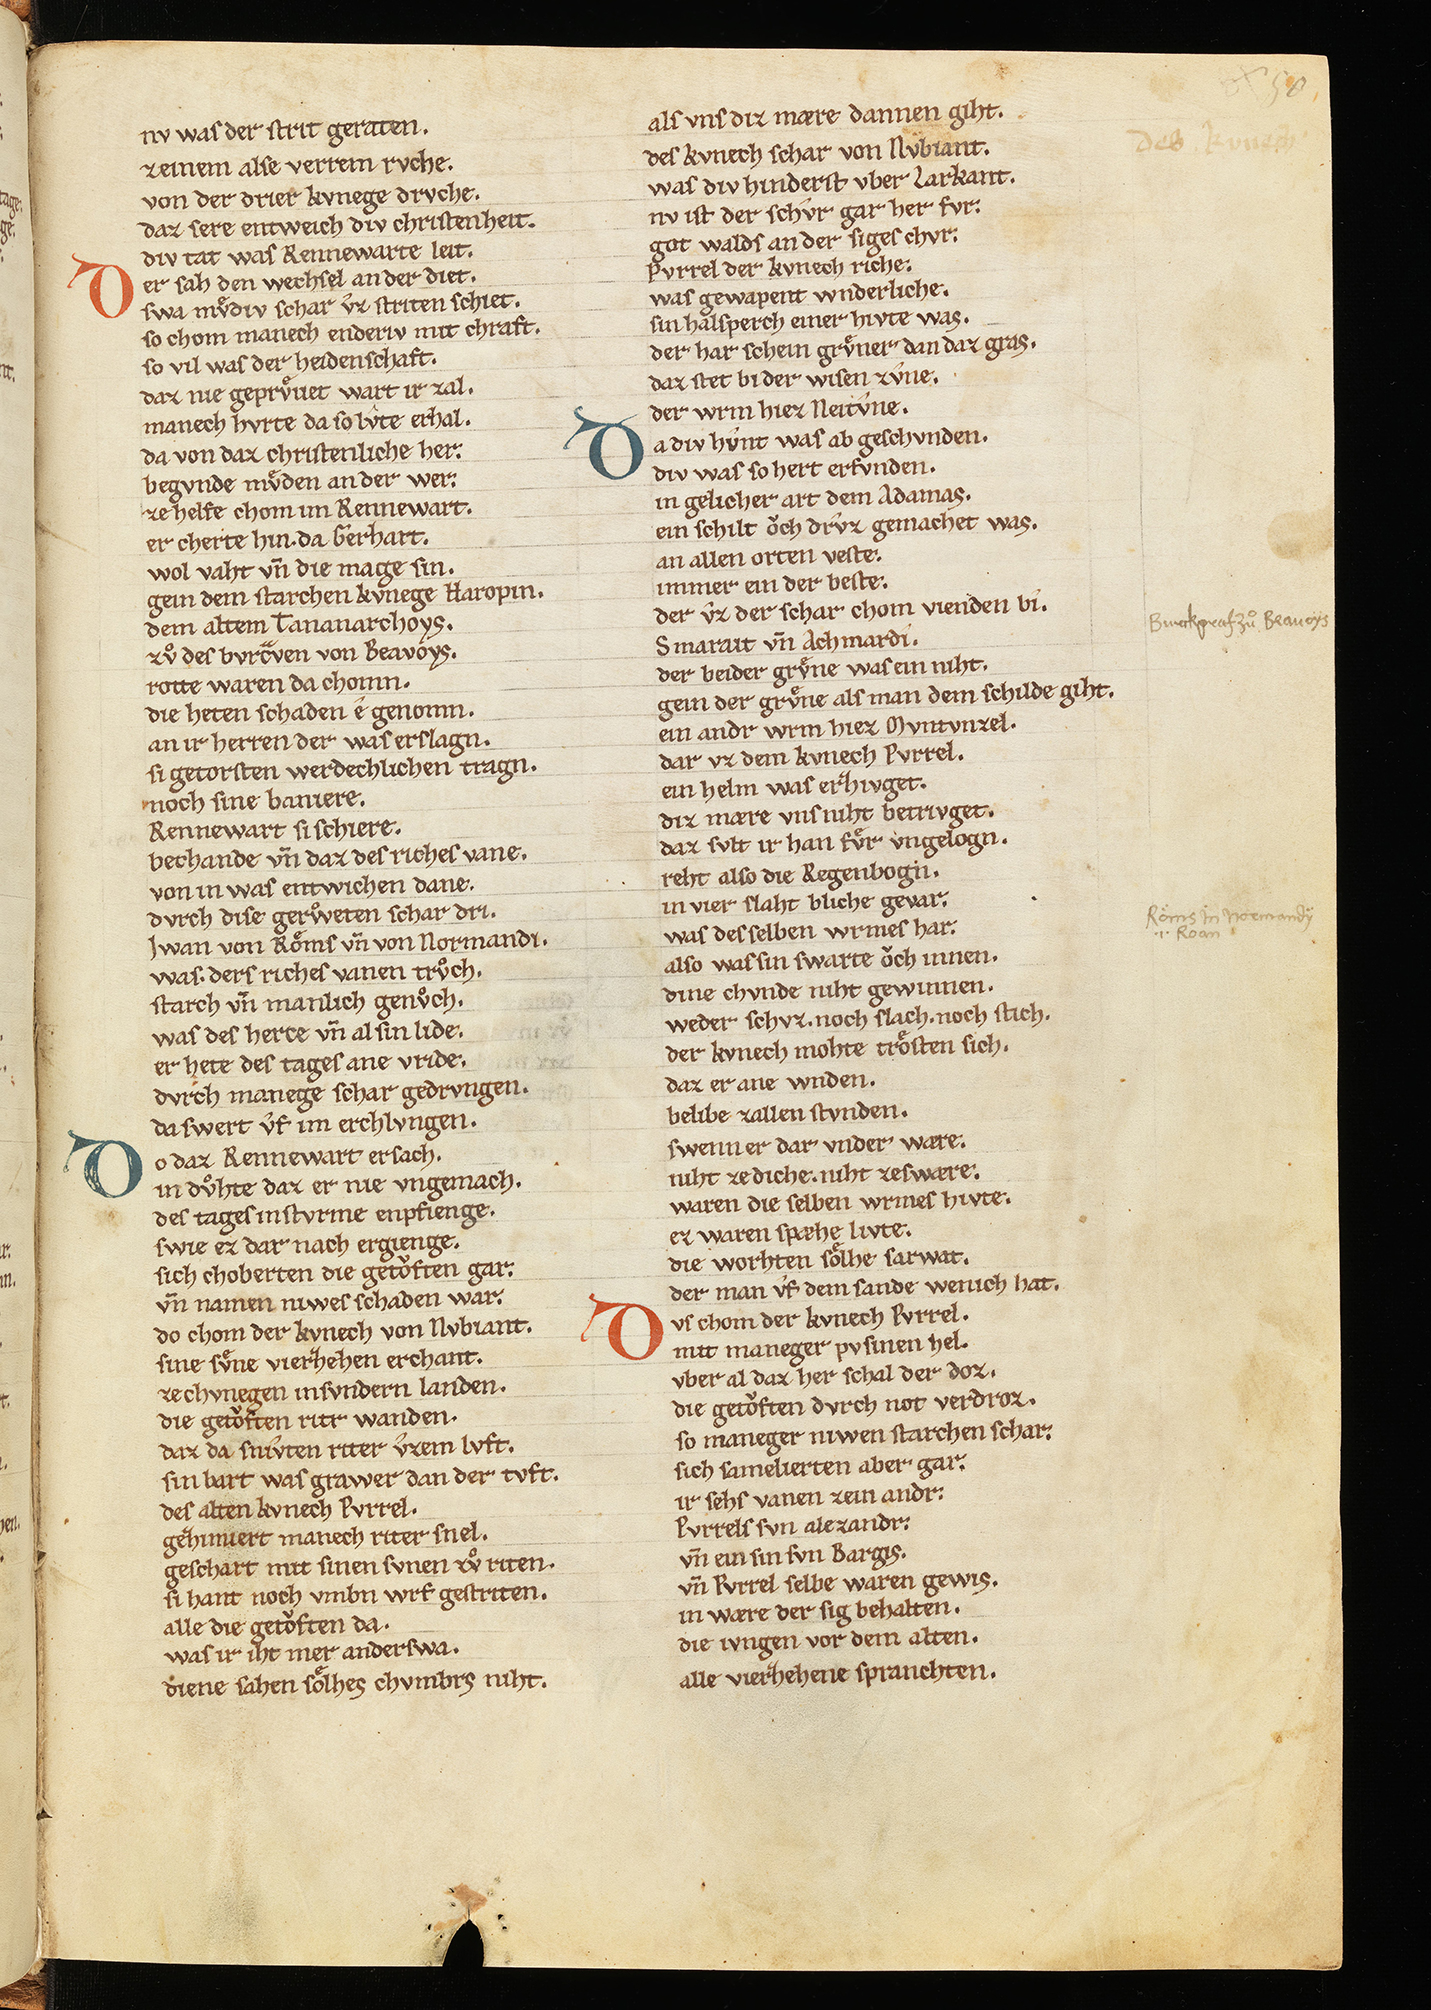 nv was der strit geraten.
zeinem alse verrem rvche.
von der drier kvnege drvche.
daz sere entweich div christenheit.
div tat was Rennewarte leit.
D er sah den wechsel an der diet.
swa mv̊div schar v̂z striten schiet.
so chom manech enderiv mit chraft.
so vil was der heidenschaft.
daz nie geprv̊uet wart ir zal.
manech hvrte da so lv̂te erhal.
da von daz christenliche her.
begvnde mv̊den an der wer.
ze helfe chom im Rennewart.
er cherte hin. da Gerhart.
wol vaht vn̄ die mage sin.
gein dem starchen kvnege Haropin.
dem altem Tananarchoys.
zv̊ des bvrcᵃven von Beavoys.
rotte waren da chomn.
die heten schaden é genomn.
an ir herren der was erslagn.
si getorsten werdechlichen tragn.
noch sine baniere.
Rennewart si schiere.
bechande vn̄ daz des riches vane.
von in was entwichen dane.
dvrch dise gerv̊weten schar dri.
Jwan von Roͤms vn̄ von Normandi.
was. ders riches vanen trv̊ch.
starch vn̄ manlich genv̊ch.
was des herce vn̄ al sin lide.
er hete des tages ane vride.
dvrch manege schar gedrvngen.
da swert v̂f im erchlvngen.
D o daz Rennewart ersach.
in dv̊hte daz er nie vngemach.
des tages in stvrme enpfienge.
swie ez dar nach ergienge.
sich choberten die getoͮften gar.
vn̄ namen niwes schaden war.
do chom der kvnech von Nvbiant.
sine sv̊ne vierzhehen erchant.
ze chvnegen insvndern landen.
die getoͮften ritr wanden.
daz da sniv̂ten riter v̂zem lvft.
sin bart was grawer dan der tvft.
des alten kvnech Pvrrel.
gehimiert manech riter snel.
geschart mit sinen svnen zv̊ riten.
si hant noch vmbn wrf gestriten.
alle die getoͮften da.
was ir iht mer anderswa.
diene sahen soͤlhes chvmbrs niht.
als vns diz mære dannen giht.
des kvnech schar von Nvbiant.
was div hinderst vber Larkant.
nv ist der schv̂r gar her fvr.
got walds an der siges chvr.
Pvrrel der kvnech riche.
was gewapent wnderliche.
sin halsperch einer hivte was.
der har schein grv̊ner dan daz gras.
daz stet bi der wisen zv̂ne.
der wrm hiez Neitv̂ne.
D a div hv̂nt was ab geschvnden.
div was so hert erfvnden.
in gelicher art dem Adamas.
ein schilt oͮch drv̂z gemachet was.
an allen orten veste.
immer ein der beste.
der v̂z der schar chom vienden bi.
Smarait vn̄ Achmardi.
der beider grv̊ne was ein niht.
gein der grv̊ne als man dem schilde giht.
ein andr wrm hiez Mvntvnzel.
dar vz dem kvnech Pvrrel.
ein helm was erzhivget.
diz mære vns niht betrivget.
daz svlt ir han fv̊r vngelogn.
reht also die Regenbogn.
in vier slaht bliche gevar.
was des selben wrmes har.
also was sin swarte oͮch innen.
dine chvnde niht gewinnen.
weder schvz. noch slach. noch stich.
der kvnech mohte troͤsten sich.
daz er ane wnden.
belibe zallen stvnden.
swenn er dar vnder wære.
niht ze diche. niht ze swære.
waren die selben wrmes hivte.
ez waren spæhe livte.
die worhten soͤlhe sarwat.
der man v̂f dem sande wenich hat.
D vs chom der kvnech Pvrrel.
mit maneger pvsinen hel.
vber al daz her schal der doz.
die getoͮften dvrch not verdroz.
so maneger niwen starchen schar.
sich samelierten aber gar.
ir sehs vanen zein andr.
Pvrrels svn alexandr.
vn̄ ein sin svn Bargis.
vn̄ Pvrrel selbe waren gewis.
in wære der sig behalten.
die ivngen vor dem alten.
alle vierzhehene spranchten.
58
Des kvnech
Burckgraf zů Beauoys
Röms in Normandÿ
Roan